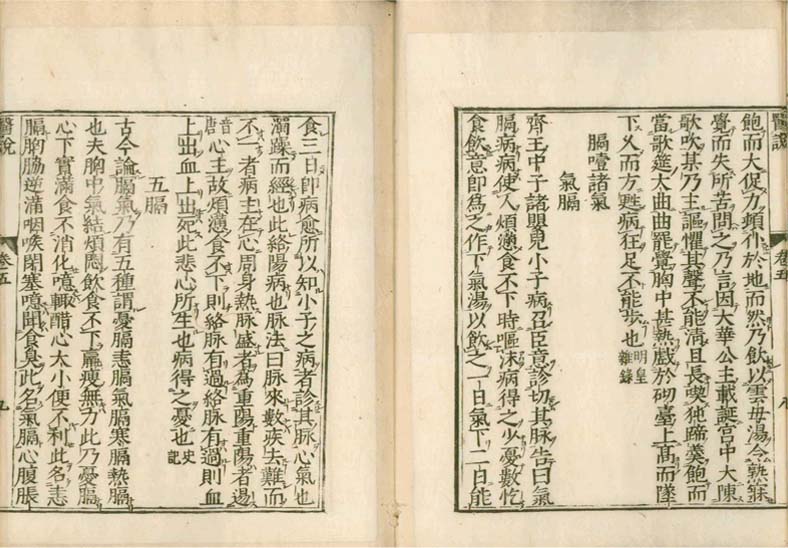 醫說
卷五
九
飽而大促力頓仆於地而然乃飲以雲毋湯令熟寐
覺而失所苦問之乃言因大華公主載誕宮中大陳
歌吹某乃主謳懼其聲不能清且長喫㹠蹄羹飽而
當歌筵大曲曲罷覺胸中甚熱戲於砌臺上高而墜
下久而方甦病狂足不能步也明皇雜錄
膈噎諸氣
氣膈
齊王中子諸嬰兒小子病召臣意診切其脉告曰氣
膈病病使人煩懣食不下時嘔沫病得之少憂數忔
食飲意即為之作下氣湯以飲之一日氣下二日能
食三日即病愈所以知小子之病者診其脉心氣也
濁躁而經也此絡陽病也脉法曰脉來數疾去難而
不一者病主在心周身熱脉盛者為重陽重陽者逿
音唐心主故煩懣食不下則絡脉有過絡脉有過則血
上出血上出死此悲心所生也病得之憂也史記
五膈
古今論膈氣乃有五種謂憂膈恚膈氣膈寒膈熱膈
也夫胸中氣結煩悶飲食不下羸瘦無力此乃憂膈
心下實滿食不消化噫輙醋心大小便不利此名恚
膈胸脇逆滿咽喉閉塞噫聞食臭此名氣膈心腹脹
醫說
卷五
九